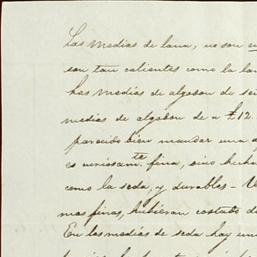 Las medias de lana, no son
son tan calientes como la la
has medias de algodon de se
medias de algodon de a £12.
parecido bien mandar una d
es fina, sino hecha
como la seda, y durables -
mas finas, hubieran costado d
En las medias de seda hay un